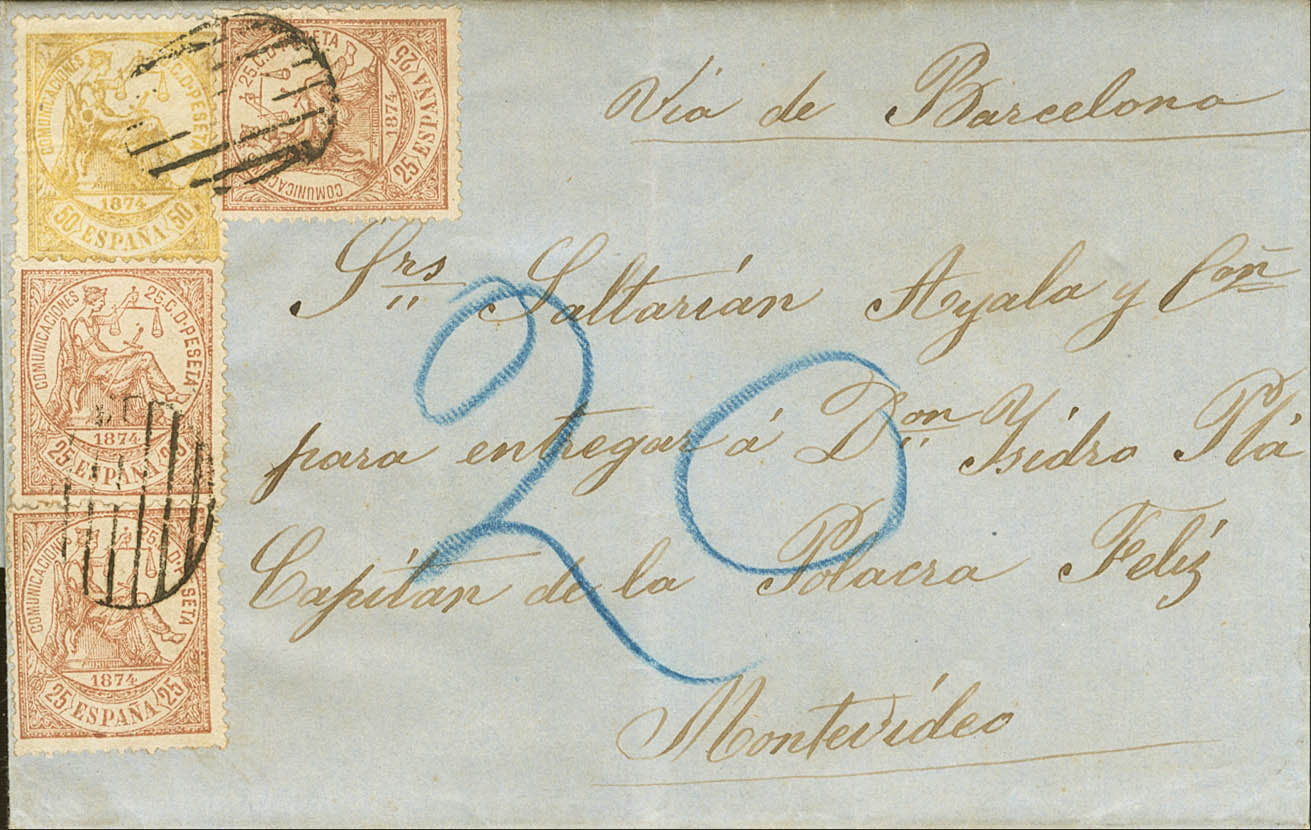 COMUNICACIONES 50 C. D PESETA
1874
50 ESPAÑA 50
COMUNICACIONES 25 C. D PESETA
1874
25 ESPAÑA 25
Via de Barcelona
Srs Saltarián Ayala y Coñ
para entregar á Don Ysidro Plá
Capitán de la Polacra Feliz
Montevídeo
20
COMUNICACIONES 25 C. D PESETA
1874
25 ESPAÑA 25
COMUNICACIONES 25 C. D PESETA
1874
25 ESPAÑA 25